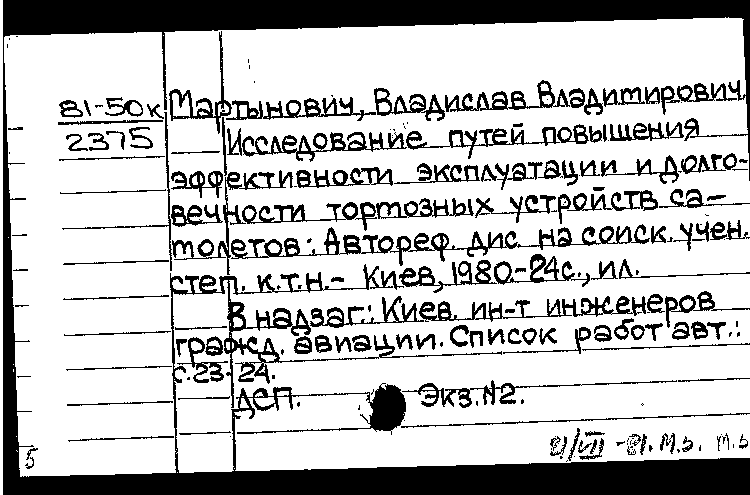 81-50к Мартынович, Владислав Владимирович.
2375 Исследование путей повышения
эффективности эксплуатации и долго-
вечности тормозных устройств са-
молетов: Автореф. дис. на соиск. учен.
степ. к.т.н.- Киев, 1980.-24с., ил.
В надзаг.: Киев. ин-т инженеров
гражд. авиации. Список работ авт.:
с.23-24.
ДСП. Экз.№2.
21/VII -81. М.Э. М.Э
5